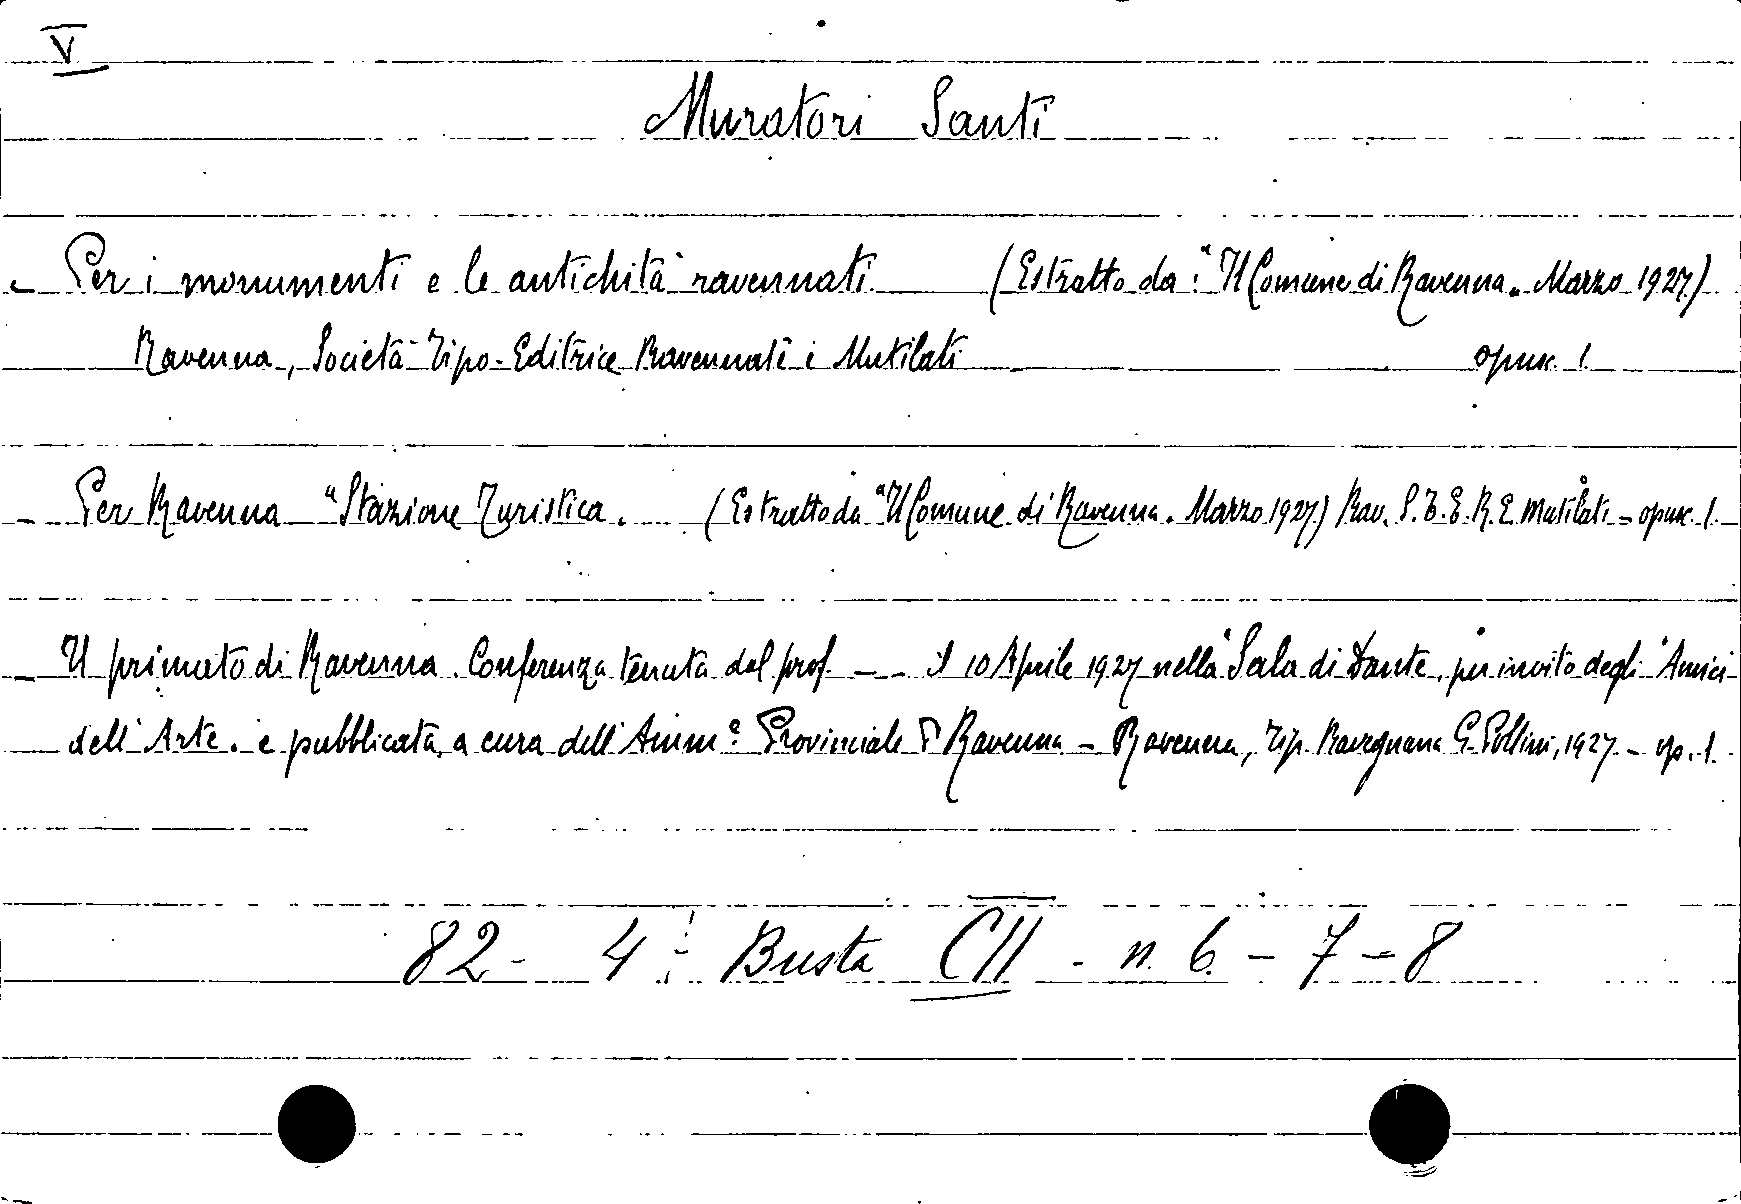 V
Muratori Santi
- Per i monumenti e le antichità ravennati (Estratto da: "Il Comune di Ravenna„ Marzo 1927.)
Ravenna, Società Tipo-Editrice Ravennate i Mutilati opusc. 1.
- Per Ravenna "Stazione Turistica. (Estratto da "Il Comune di Ravenna. Marzo 1927.) Rav. S.T.E.R.E. Mutilati - opusc. 1.
- Il primato di Ravenna. Conferenza tenuta dal prof. -- il 10 Aprile 1927 nella "Sala di Dante, per invito degli "Amici
dell'Arte. e pubblicata a cura dell'Ammᵉ Provinciale Ravenna - Ravenna, Tip. Ravegnana G. Pollini, 1927. - op. 1.
82 - 4 : Busta CII - n. 6. - 7 - 8